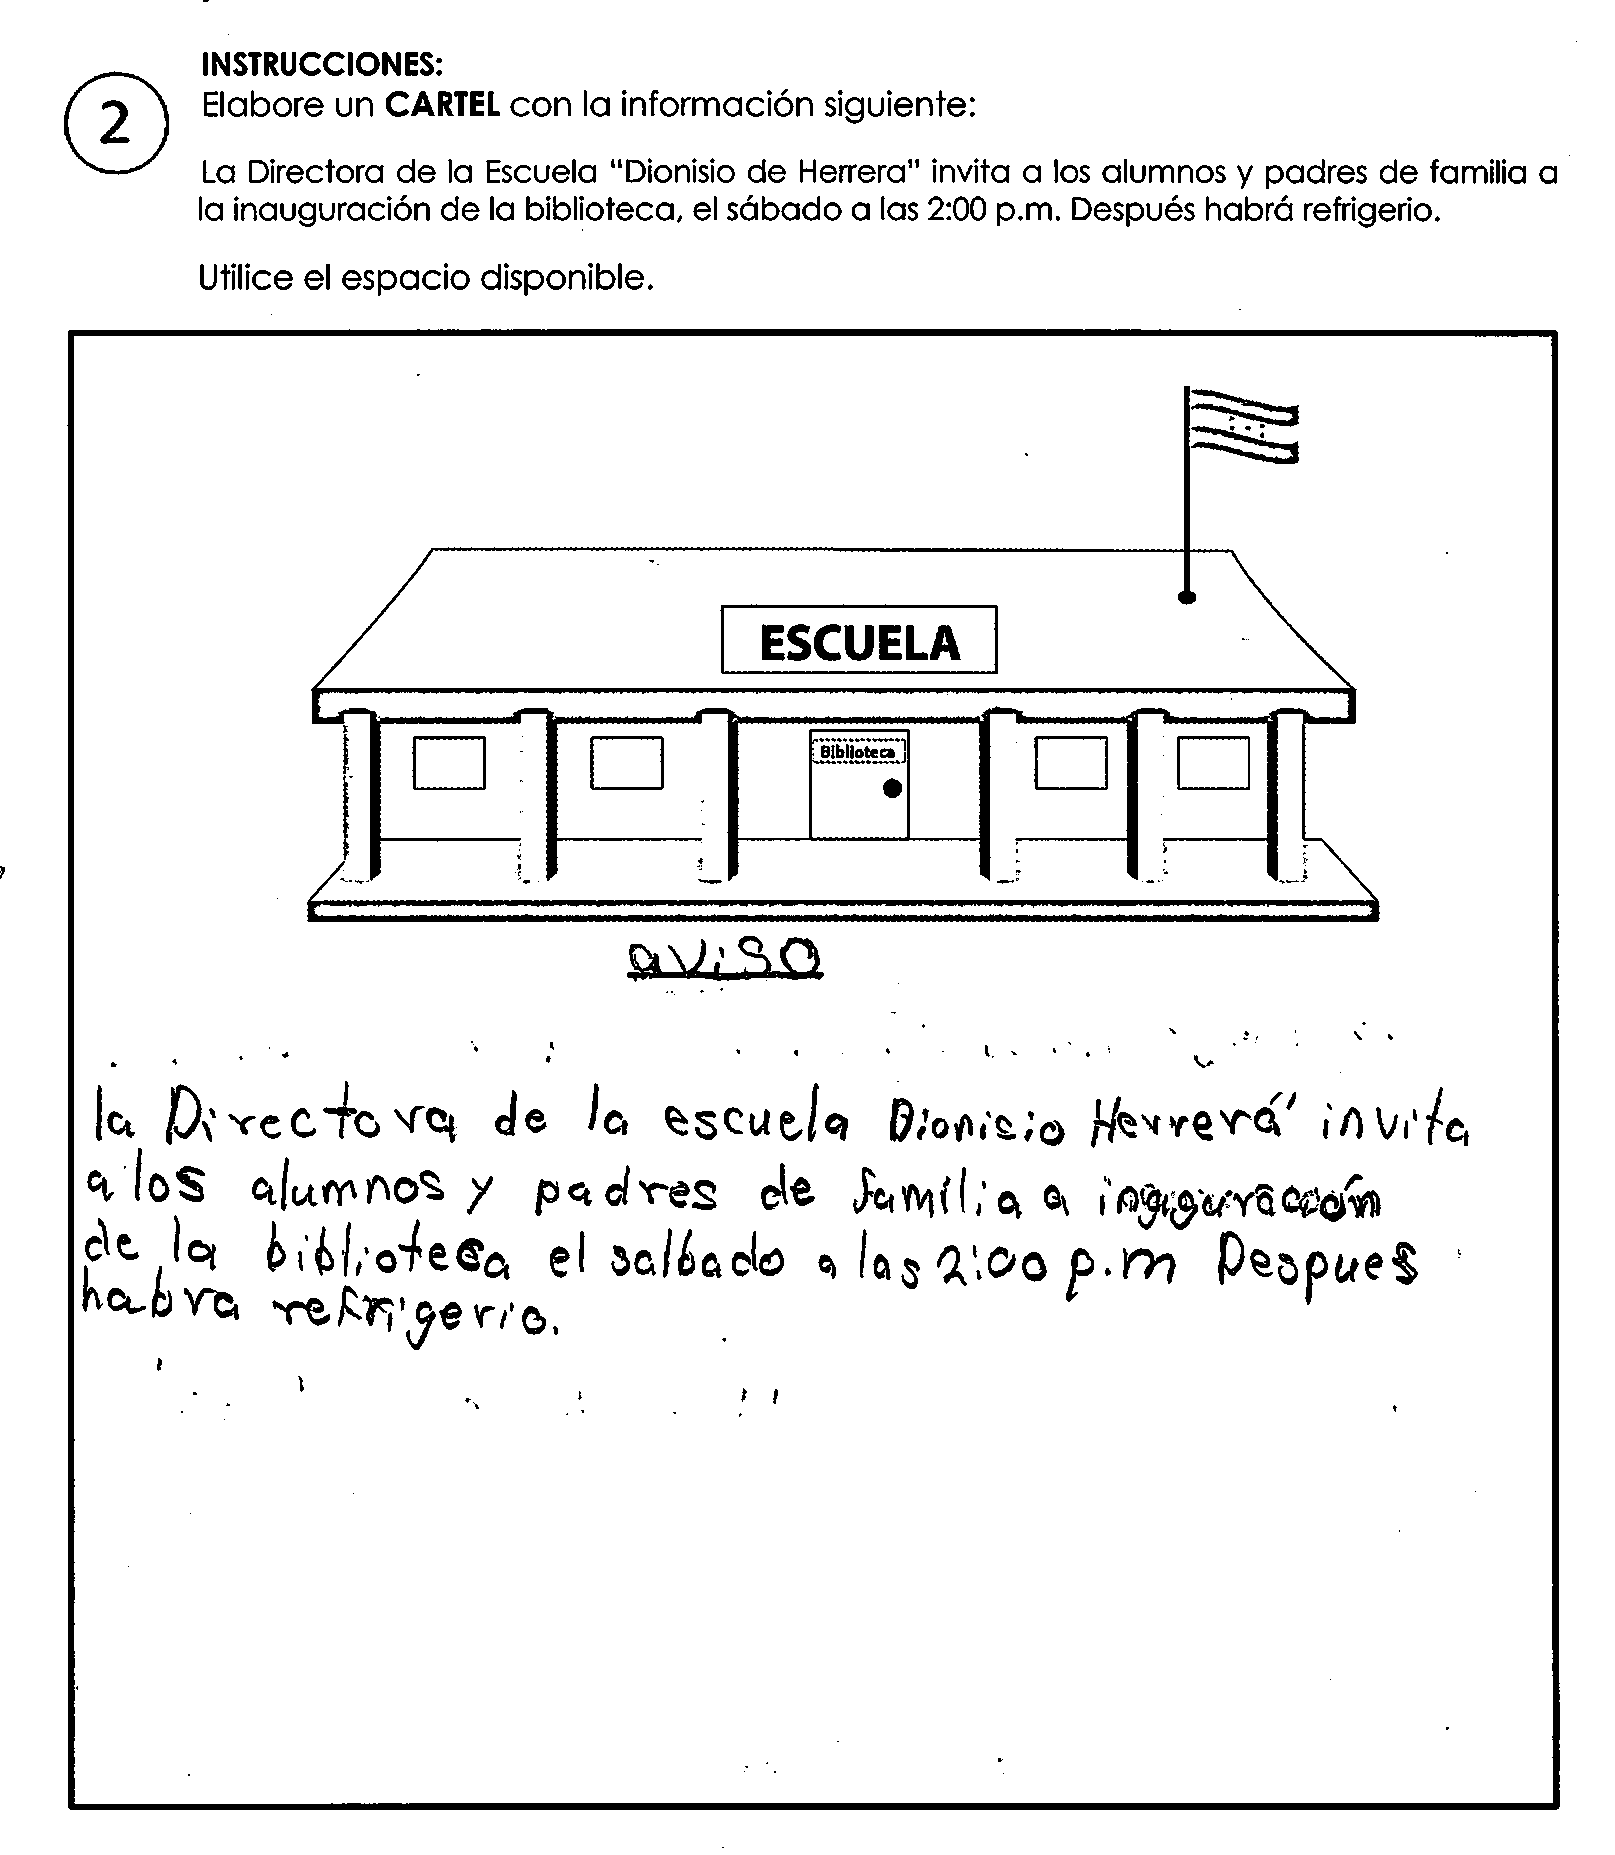 INSTRUCCIONES:
2
Elabore un CARTEL con la información siguiente:
La Directora de la Escuela "Dionisio de Herrera" invita a los alumnos y padres de familia a
la inauguración de la biblioteca, el sábado a las 2:00 p.m. Después habrá refrigerio.
Utilice el espacio disponible.
ESCUELA
Biblioteca
aviso
la Directora de la escuela Dionicio Herrerá' invita
a los alumnos y padres de família a
de la biblioteca el salbado a las 2:00 p.m Despues
habra refrigerio.